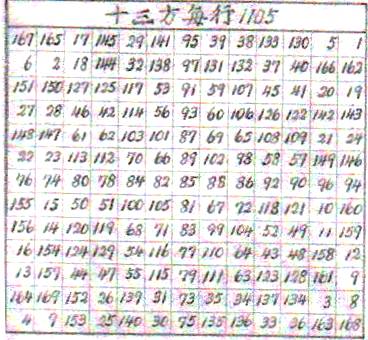 十三方每行1105
167 165 17 145 29 141 95 39 38 133 130 5 1
6 2 18 144 32 138 97 131 132 37 40 166 162
151 150 127 125 117 53 91 59 107 45 41 20 19
27 28 46 42 114 56 93 60 106 126 122 142 143
148 147 61 62 103 101 87 69 65 108 109 21 24
22 23 113 112 70 66 89 102 98 58 57 149 146
76 74 80 78 84 82 85 88 86 92 90 96 94
155 15 50 51 100 105 81 67 72 118 121 10 160
156 14 120 119 68 71 83 99 104 52 49 11 159
16 154 124 129 54 116 77 110 64 43 48 158 12
13 157 44 47 55 115 79 111 63 123 128 161 9
164 169 152 26 139 31 73 35 34 137 134 3 8
4 7 153 25 140 30 75 135 136 33 36 163 168